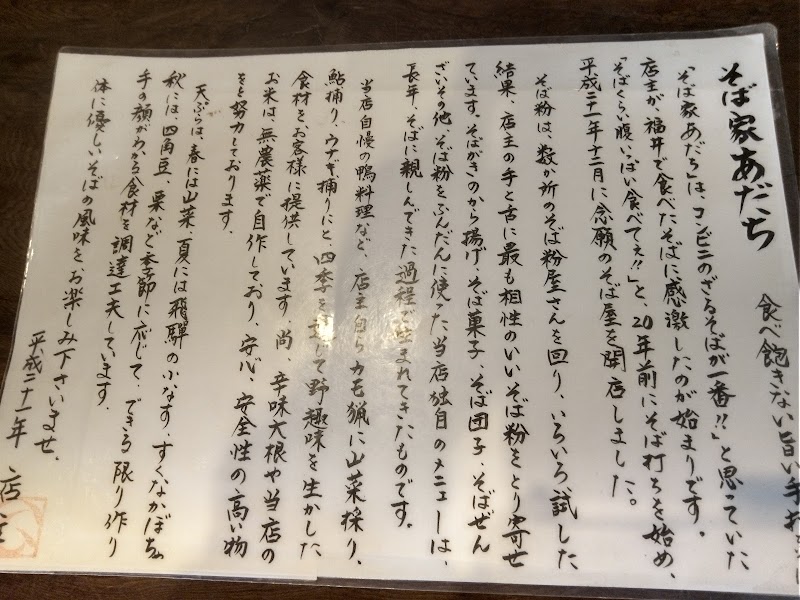 食べ飽きない旨い手打
そば家あだち
「そば家あだち」は、コンビニのざるそばが一番!!」と思っていた
店主が、福井で食べたそばに感激したのが始まりです。
「そばくらい腹いっぱい食べてぇ!!」と、20年前にそば打ちを始め、
平成二十一年十二月に念願のそば屋を開店しました。
そば粉は、数か所のそば粉屋さんを回り、いろいろ試した
結果、店主の手と舌に最も相性のいいそば粉をとり寄せ
ています。そばがきのから揚げ、そば菓子、そば団子、そばぜん
ざいその他、そば粉をふんだんに使った当店独自のメニューは、
長年、そばに親しんできた過程で生まれてきたものです。
当店自慢の鴨料理など、店主自らカモ猟に山菜採り、
鮎捕り、ウナギ捕りにと、四季を通して野趣味を生かした
食材をお客様に提供しています。尚、辛味大根や当店の
お米は、無農薬で自作しており、安心、安全性の高い物
をと努力しております。
天ぷらは、春には山菜、夏には飛騨の小なす、すくなかぼちゃ
秋には、四角豆、栗など季節に応じて、できる限り作り
手の顔がわかる食材を調達工夫しています。
体に優しいそばの風味を、お楽しみ下さいませ。
平成二十一年 店主